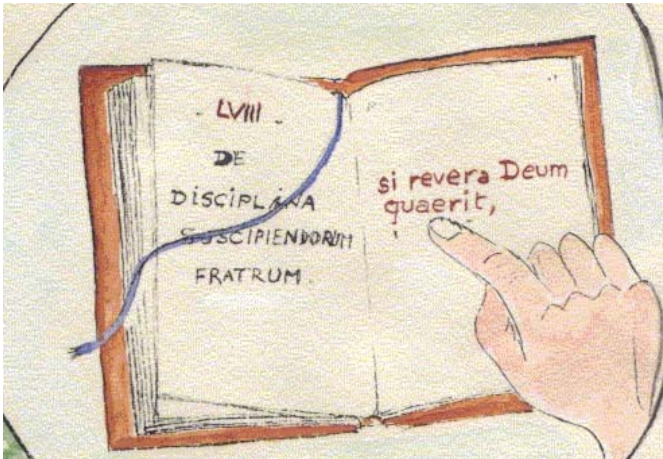 LVIII
DE
DISCIPLINA
SUSCIPIENDORUM
FRATRUM.
si revera Deum
quaerit,